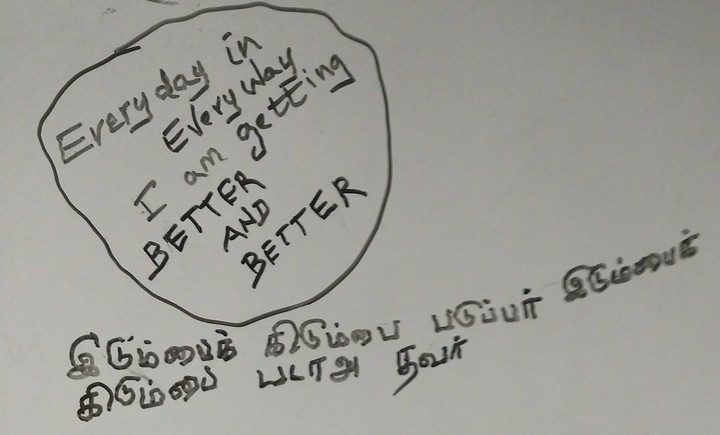 Everyday in
Every way
I am getting
BETTER
AND
BETTER
இடும்பைக் கிடும்பை படுப்பர் இடும்பைக்
கிடும்பை படாஅ தவர்